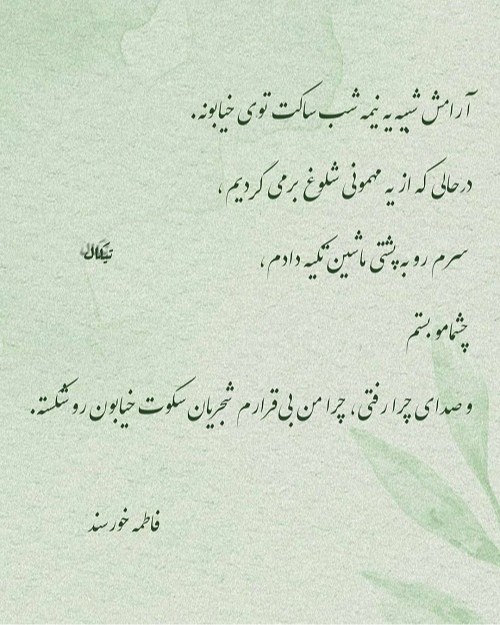 آرامش شبیه یه نیمه شب ساکت توی خیابونه.
درحالی که از یه مهمونی شلوغ برمی گردیم،
سرم رو به پشتی ماشین تکیه دادم،
چشمامو بستم
و صدای چرا رفتی، چرا من بی قرارم شجریان سکوت خیابون رو شکسته.
فاطمه خورسند